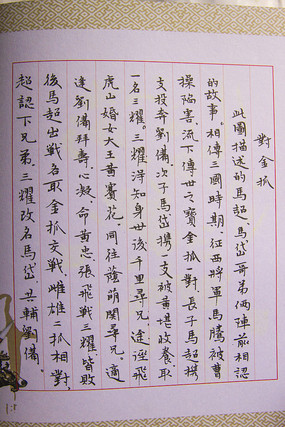 對金抓
此圖描述的馬超、馬岱哥弟倆陣前相認
的故事。相傳三國時期，征西將軍馬騰被曹
操陷害，流下傳世之寶金抓一對，長子馬超携一
支投奔劉備。次子馬岱携一支被黃堪救養取
一名三耀。三耀淂知身世後，千里尋兄，途逕飛
虎山婚女大王黃賽花，同往葭萌關尋兄。適
逢劉備拜壽，心凝，命黃忠、張飛戰三耀，皆敗。
後馬超出戰，各取金抓交戰，雌雄二抓相對，
超認下兄弟，三耀改名馬岱，共輔劉備。